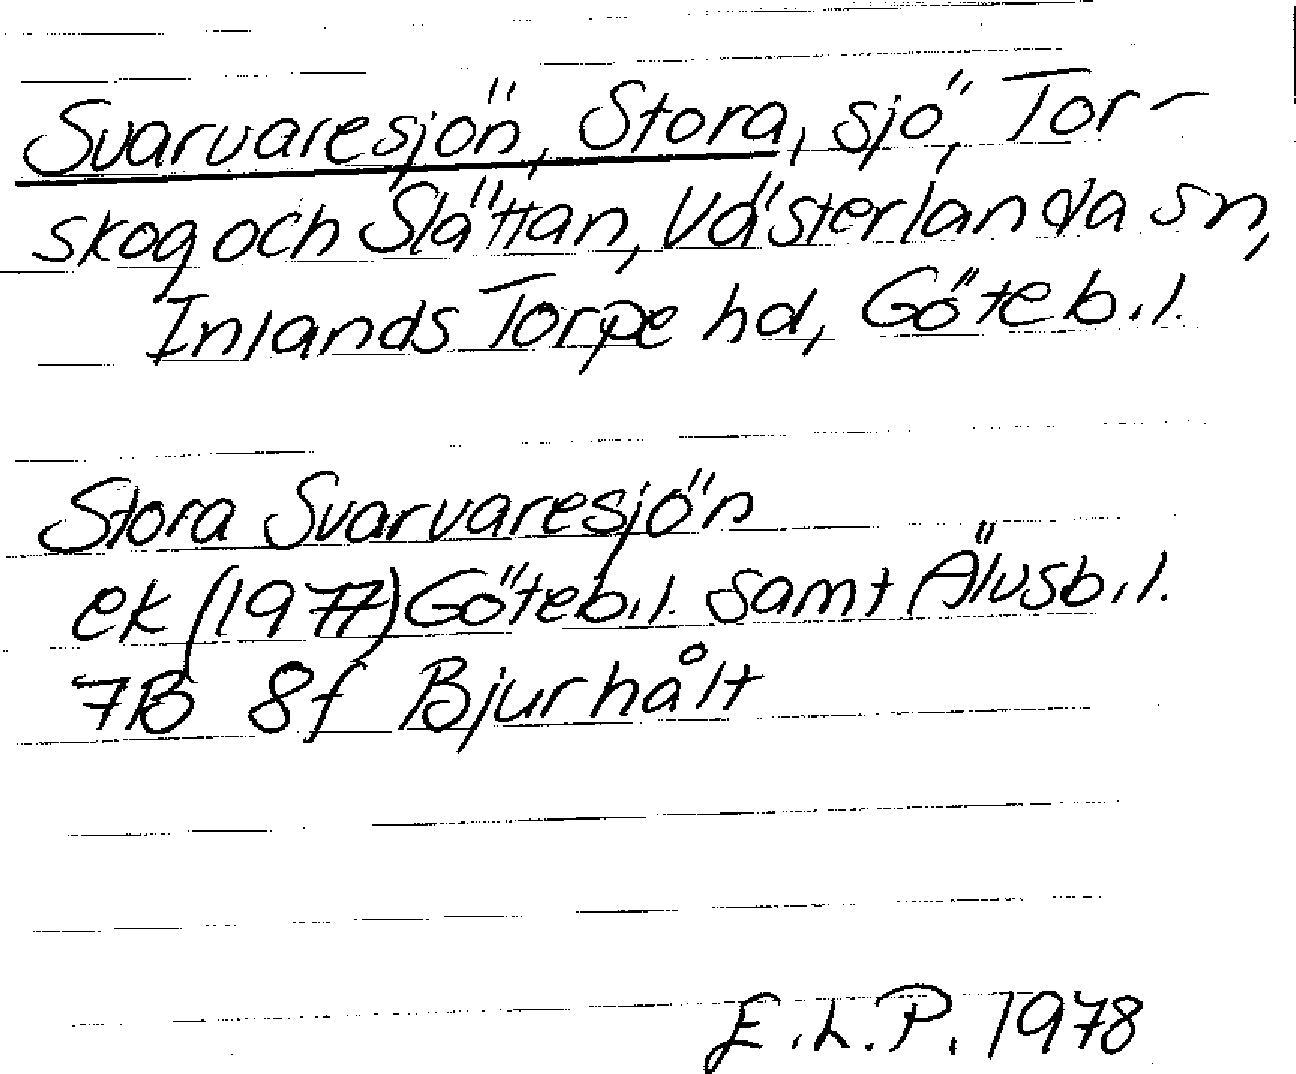 Svarvaresjön, Stora, sjö, Tor-
skog och Slättan, Västerlanda sn,
Inlands Torpe hd, Göteb.l.
Stora Svarvaresjön
ek (1977) Göteb.l. samt Älvsb.l.
7B 8f Bjurhålt
E.L.P. 1978